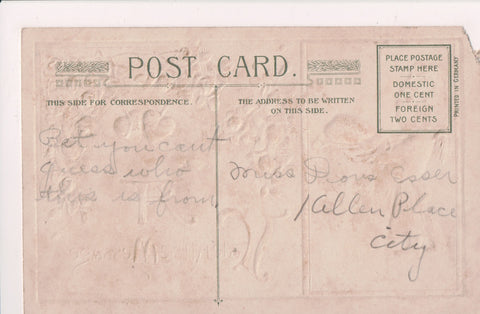 POST CARD.
PLACE POSTAGE
STAMP HERE
DOMESTIC
ONE CENT
FOREIGN
TWO CENTS
PRINTED IN GERMANY
THIS SIDE FOR CORRESPONDENCE.
THE ADDRESS TO BE WRITTEN
ON THIS SIDE.
Bet you cant
guess who
this is from
Miss Esser
1 Allen Place
City